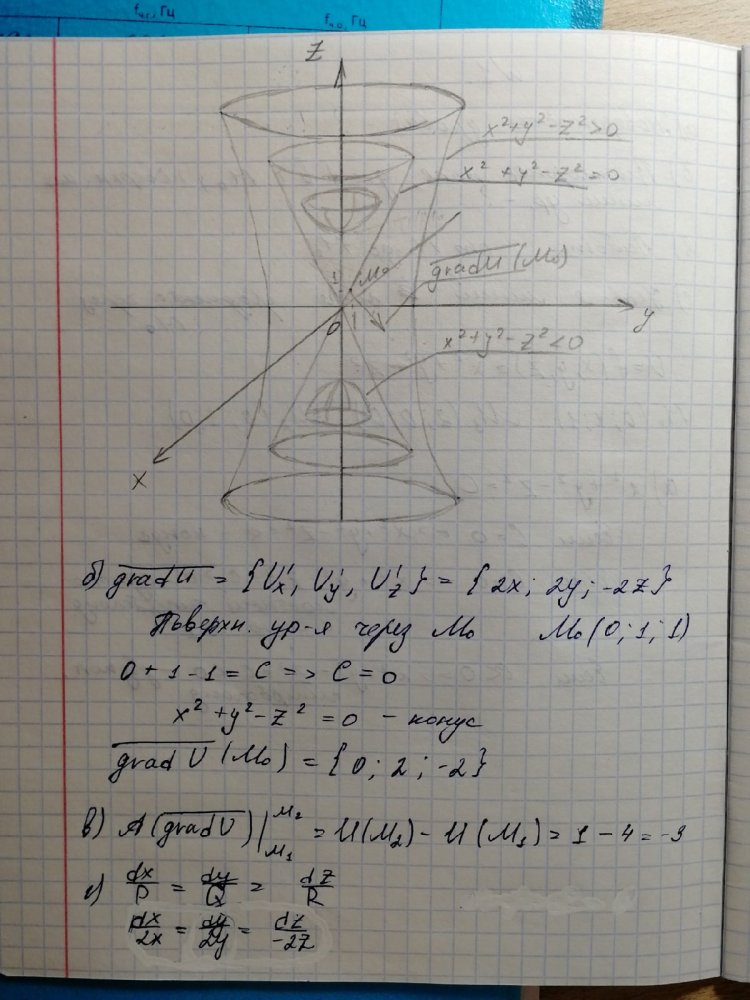 fч.г., Гц
fч.о., Гц
Z
x²+y²-z²>0
x²+y²-z²=0
1
M₀
gradU(M₀)
0
1
y
x²+y²-z²<0
x
б) gradU = {U'x, U'y, U'z} = {2x; 2y; -2z}
Пьверхн. ур-я через M₀ M₀(0; 1; 1)
0+1-1 = C => C = 0
x²+y²-z² = 0 - конус
grad U (M₀) = {0; 2; -2}
в) A(gradU)|M₁M₂ = U(M₂) - U(M₁) = 1 - 4 = -3
г) dx/P = dy/Q = dz/R
dx/2x = dy/2y = dz/-2z